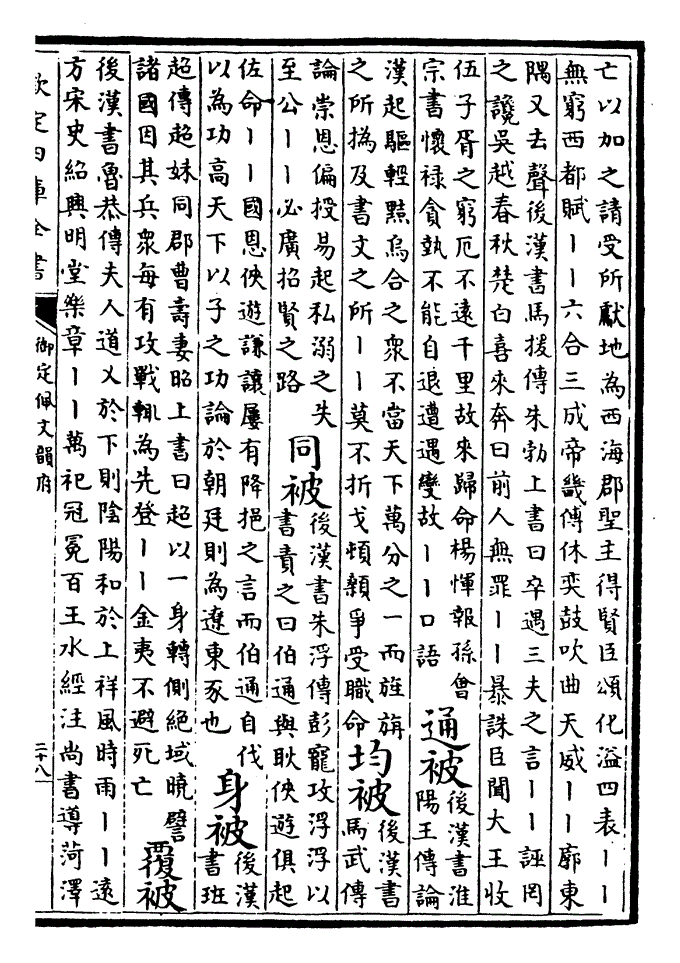 亡以加之請受所獻地為西海郡聖主得賢臣頌化溢四表丨丨
無窮西都賦丨丨六合三成帝畿傅休奕鼓吹曲天威丨丨廓東
隅又去聲後漢書馬援傳朱勃上書曰卒遇三夫之言丨丨誣罔
之讒吳越春秋楚白喜來奔曰前人無罪丨丨暴誅臣聞大王收
伍子胥之窮厄不遠千里故來歸命楊惲報孫會
宗書懷祿貪埶不能自退遭遇變故丨丨口語
通被
後漢書淮
陽王傳論
漢起驅輕黠烏合之衆不當天下萬分之一而旌旗
之所撝及書文之所丨丨莫不折戈頓顙爭受職命
均被
後漢書
馬武傳
論崇恩偏授易起私溺之失
至公丨丨必廣招賢之路
同被
後漢書朱浮傳彭寵攻浮浮以
書責之曰伯通與耿俠遊俱起
佐命丨丨國恩俠遊謙讓屢有降挹之言而伯通自伐
以為功高天下以子之功論於朝廷則為遼東豕也
身被
後漢
書班
超傳超妹同郡曹壽妻昭上書曰超以一身轉側絕域曉譬
諸國因其兵衆每有攻戰輒為先登丨丨金夷不避死亡
覆被
後漢書魯恭傳夫人道乂於下則陰陽和於上祥風時雨丨丨遠
方宋史紹興明堂樂章丨丨萬祀冠冕百王水經注尚書導菏澤
欽定四庫全書
御定佩文韻府
二十八